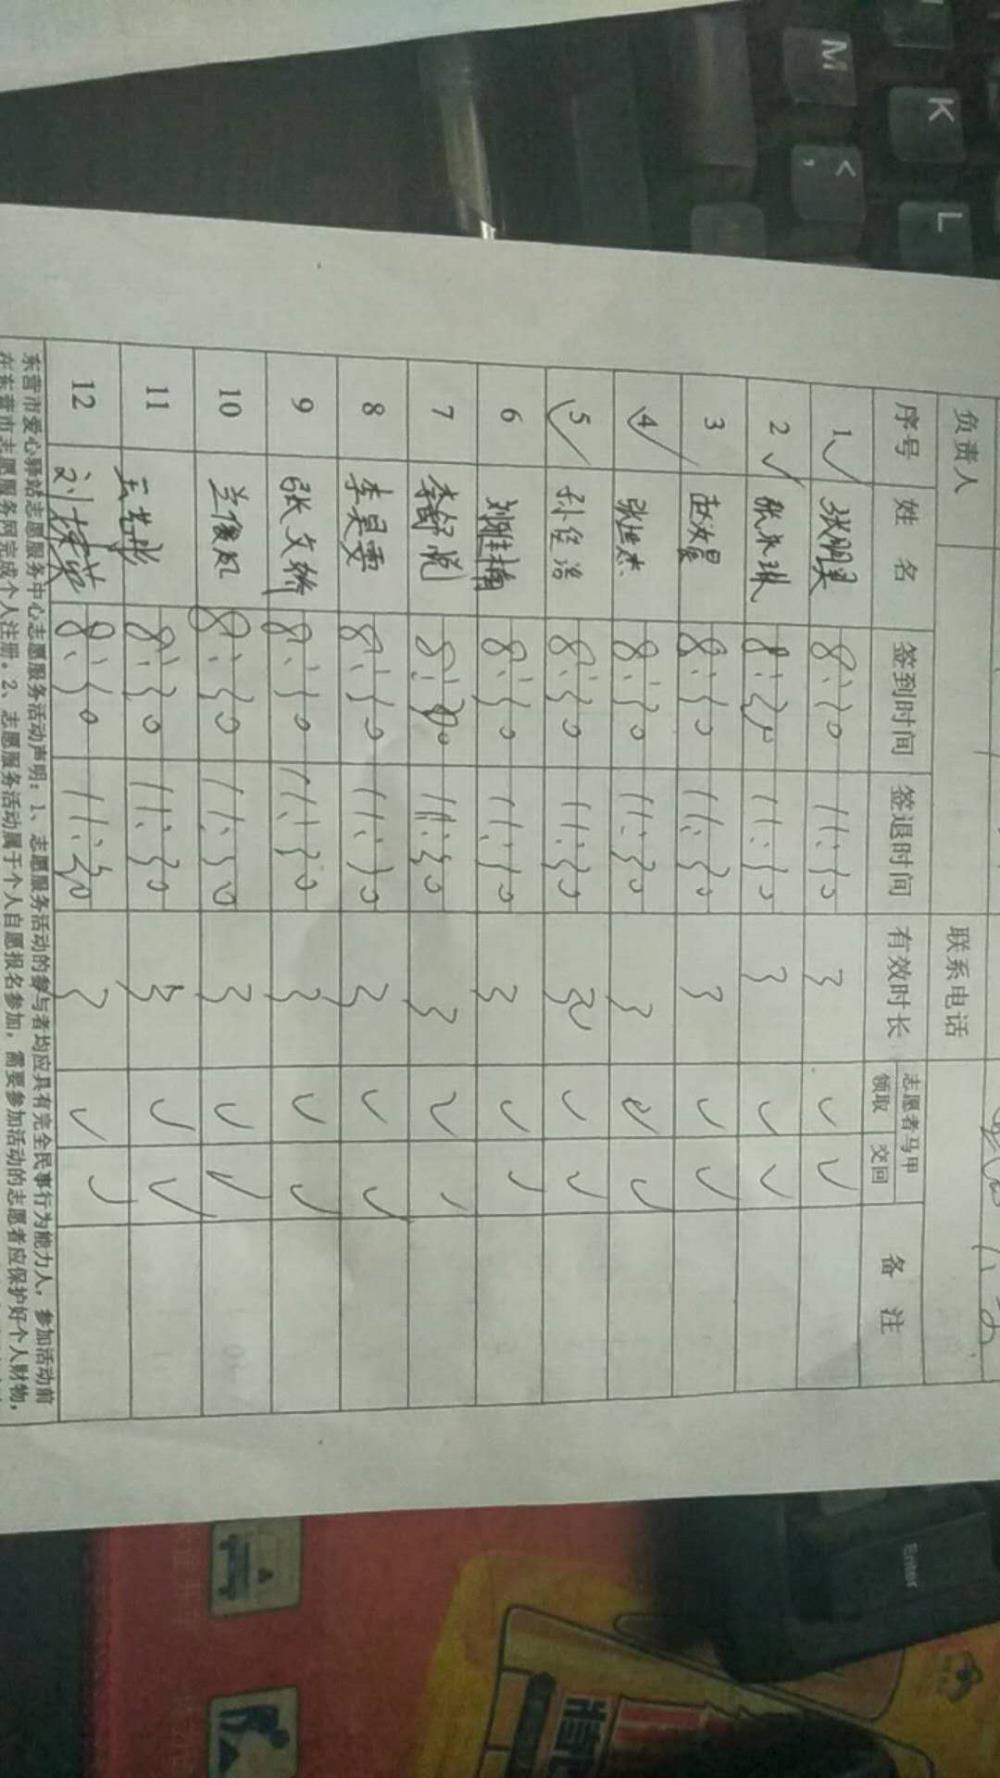 负责人 联系电话
序号 姓名 签到时间 签退时间 有效时长 志愿者马甲 领取 交回 备注
1 张鹏昊 8:30 11:30 3 ✓ ✓
2 张乐琳 8:30 11:30 3 ✓ ✓
3 赵汝昙 8:30 11:30 3 ✓ ✓
4 张世杰 8:30 11:30 3 ✓ ✓
5 孙径语 8:30 11:30 3 ✓ ✓
6 刘雅楠 8:30 11:30 3 ✓ ✓
7 李舒悦 8:30 11:30 3 ✓ ✓
8 李昊雯 8:30 11:30 3 ✓ ✓
9 张文娇 8:30 11:30 3 ✓ ✓
10 兰俊凤 8:30 11:30 3 ✓ ✓
11 王艺彤 8:30 11:30 3 ✓ ✓
12 刘梦英 8:30 11:30 3 ✓ ✓
东营市爱心驿站志愿服务中心志愿服务活动声明：1、志愿服务活动的参与者均应具有完全民事行为能力人，参加活动前
在东营市志愿服务网完成个人注册。2、志愿服务活动属于个人自愿报名参加，需要参加活动的志愿者应保护好个人财物，
M
K
<
,
L
Enter